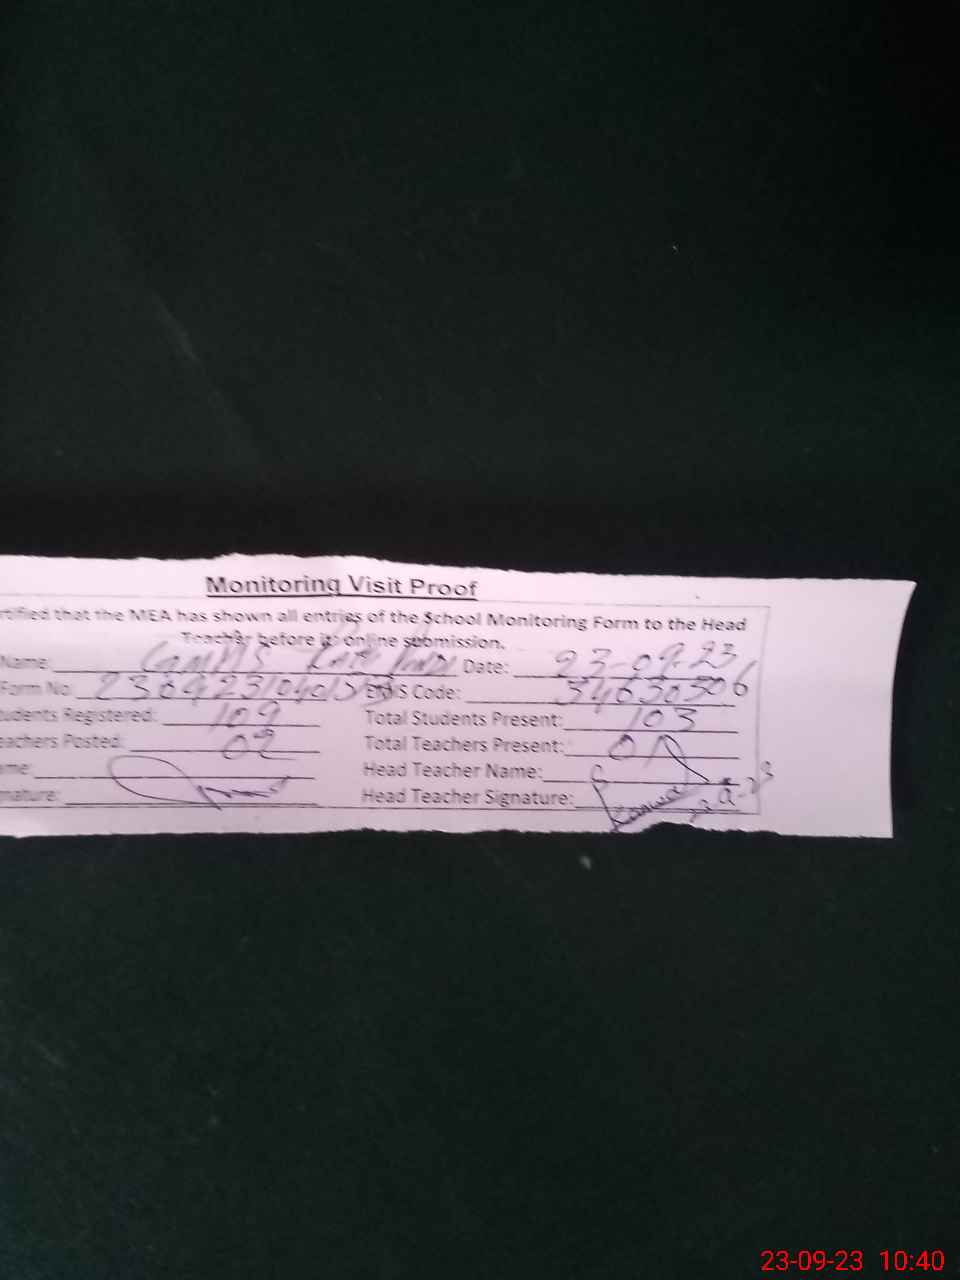 Monitoring Visit Proof
rtified that the MEA has shown all entries of the School Monitoring Form to the Head
Teacher before its online submission.
Name: GMMPS Date: 23-09-23
Form No. EMIS Code: 34630306
tudents Registered: 109 Total Students Present: 103
eachers Posted: 02 Total Teachers Present:
ame: Head Teacher Name:
nature: Head Teacher Signature:
23-09-23 10:40